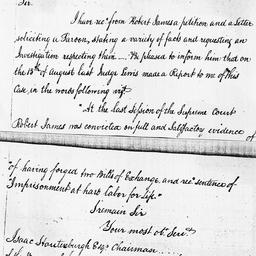 Sir.
I have rec^d from Robert James a petition and a Letter
soliciting a Pardon, stating a variety of facts and requesting an
Investigation respecting them .... Be pleased to inform him that on
the 13th of August last Judge Lewis made a Report to me of this
Case in the words following viz^t
"At the last Session of the Supreme Court
Robert James was convicted on full and Satisfactory evidence of
"of having forged two Bills of Exchange, and rec^d sentence of
"Imprisonment at hard Labor for Life"
I remain Sir
Your most ob^t Serv^t
Isaac Stoutenburgh Esq^r Chairman ....